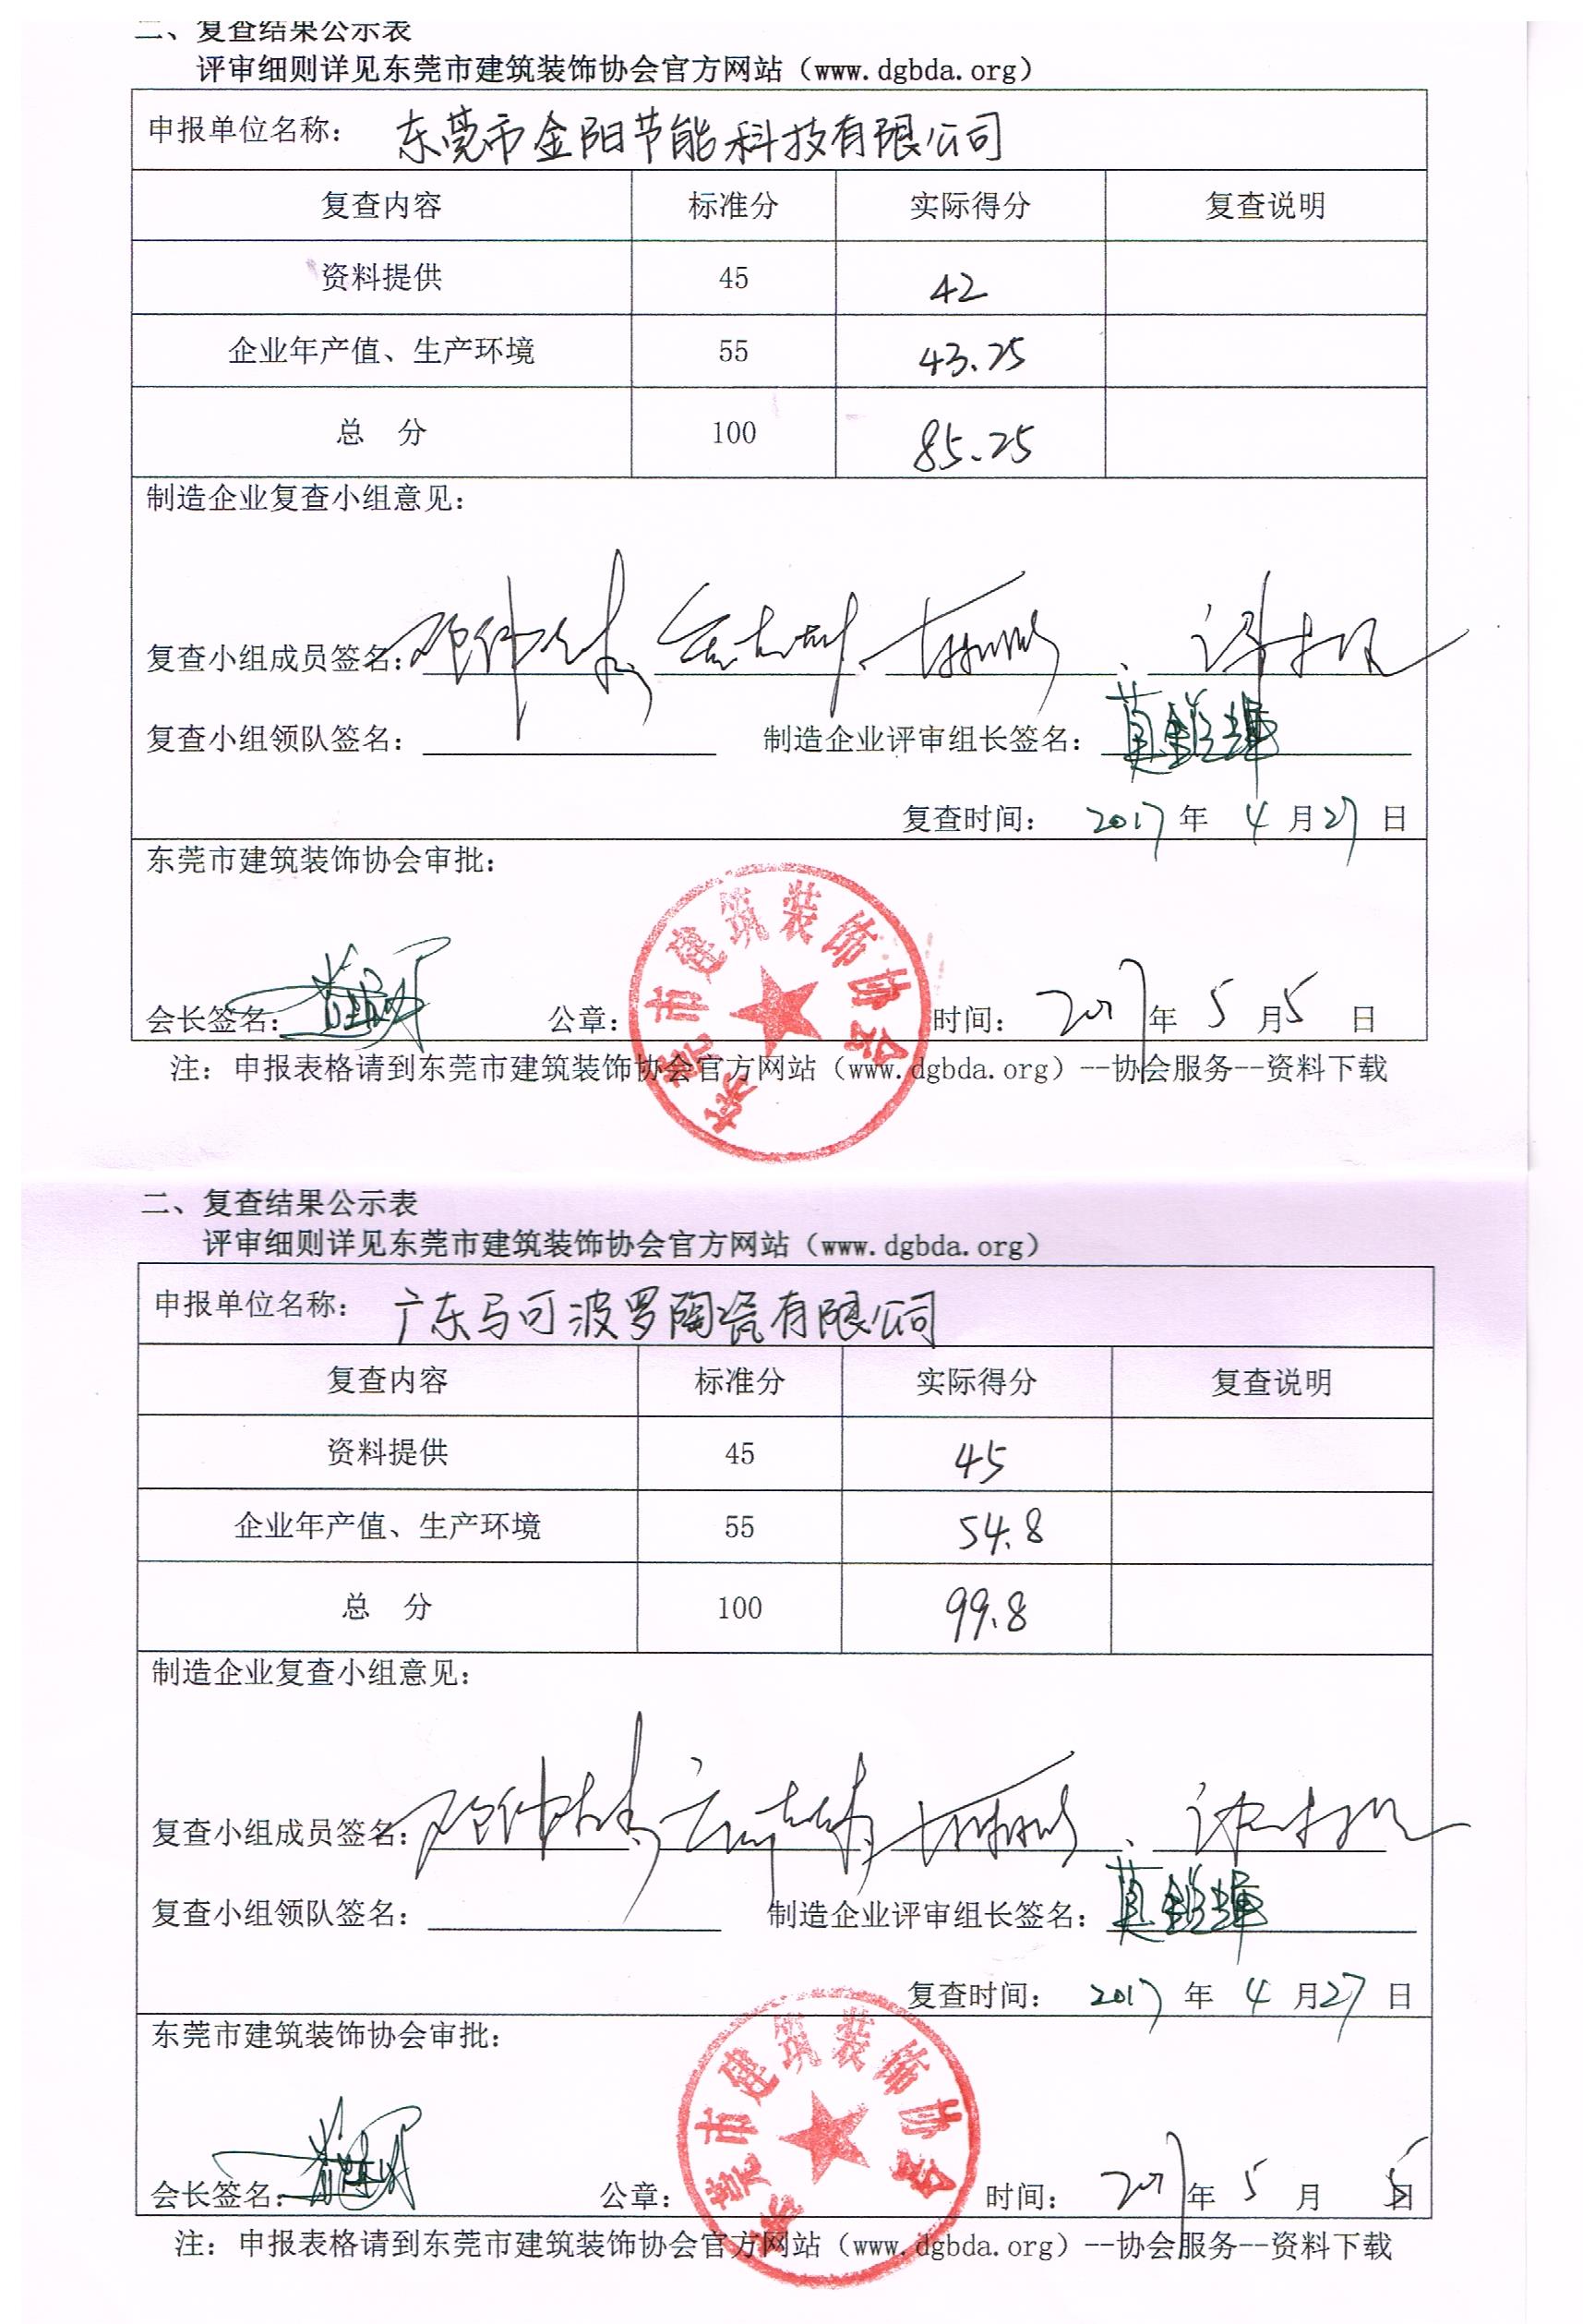 二、复查结果公示表
评审细则详见东莞市建筑装饰协会官方网站（www.dgbda.org）
申报单位名称： 东莞市金阳节能科技有限公司
复查内容 标准分 实际得分 复查说明
资料提供 45 42
企业年产值、生产环境 55 43.25
总 分 100 85.25
制造企业复查小组意见：
复查小组成员签名：
复查小组领队签名： 制造企业评审组长签名：
复查时间： 2017 年 4 月 27 日
东莞市建筑装饰协会审批：
东莞市建筑装饰协会
会长签名： 公章： 时间： 2017 年 5 月 5 日
注：申报表格请到东莞市建筑装饰协会官方网站（www.dgbda.org）--协会服务--资料下载
二、复查结果公示表
评审细则详见东莞市建筑装饰协会官方网站（www.dgbda.org）
申报单位名称： 广东马可波罗陶瓷有限公司
复查内容 标准分 实际得分 复查说明
资料提供 45 45
企业年产值、生产环境 55 54.8
总 分 100 99.8
制造企业复查小组意见：
复查小组成员签名：
复查小组领队签名： 制造企业评审组长签名：
复查时间： 2017 年 4 月 27 日
东莞市建筑装饰协会审批：
东莞市建筑装饰协会
会长签名： 公章： 时间： 2017 年 5 月 5 日
注：申报表格请到东莞市建筑装饰协会官方网站（www.dgbda.org）--协会服务--资料下载